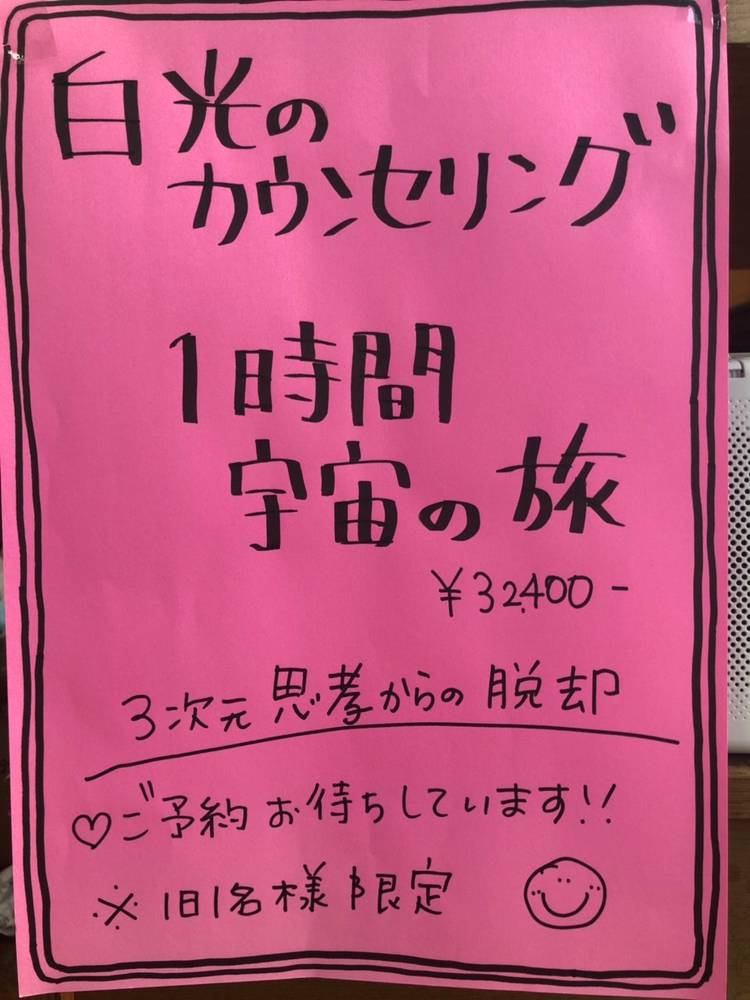 白光の
カウンセリング
1時間
宇宙の旅
¥32,400-
3次元思考からの脱却
♡ご予約お待ちしています!!
※1日1名様限定